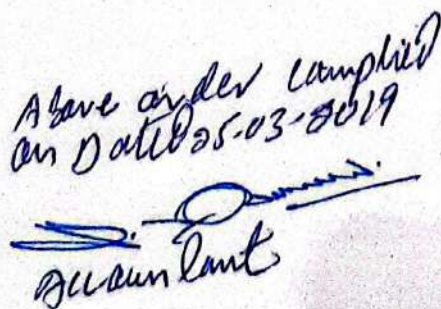 Above order complied
on Dated 25-03-2019
Accountant